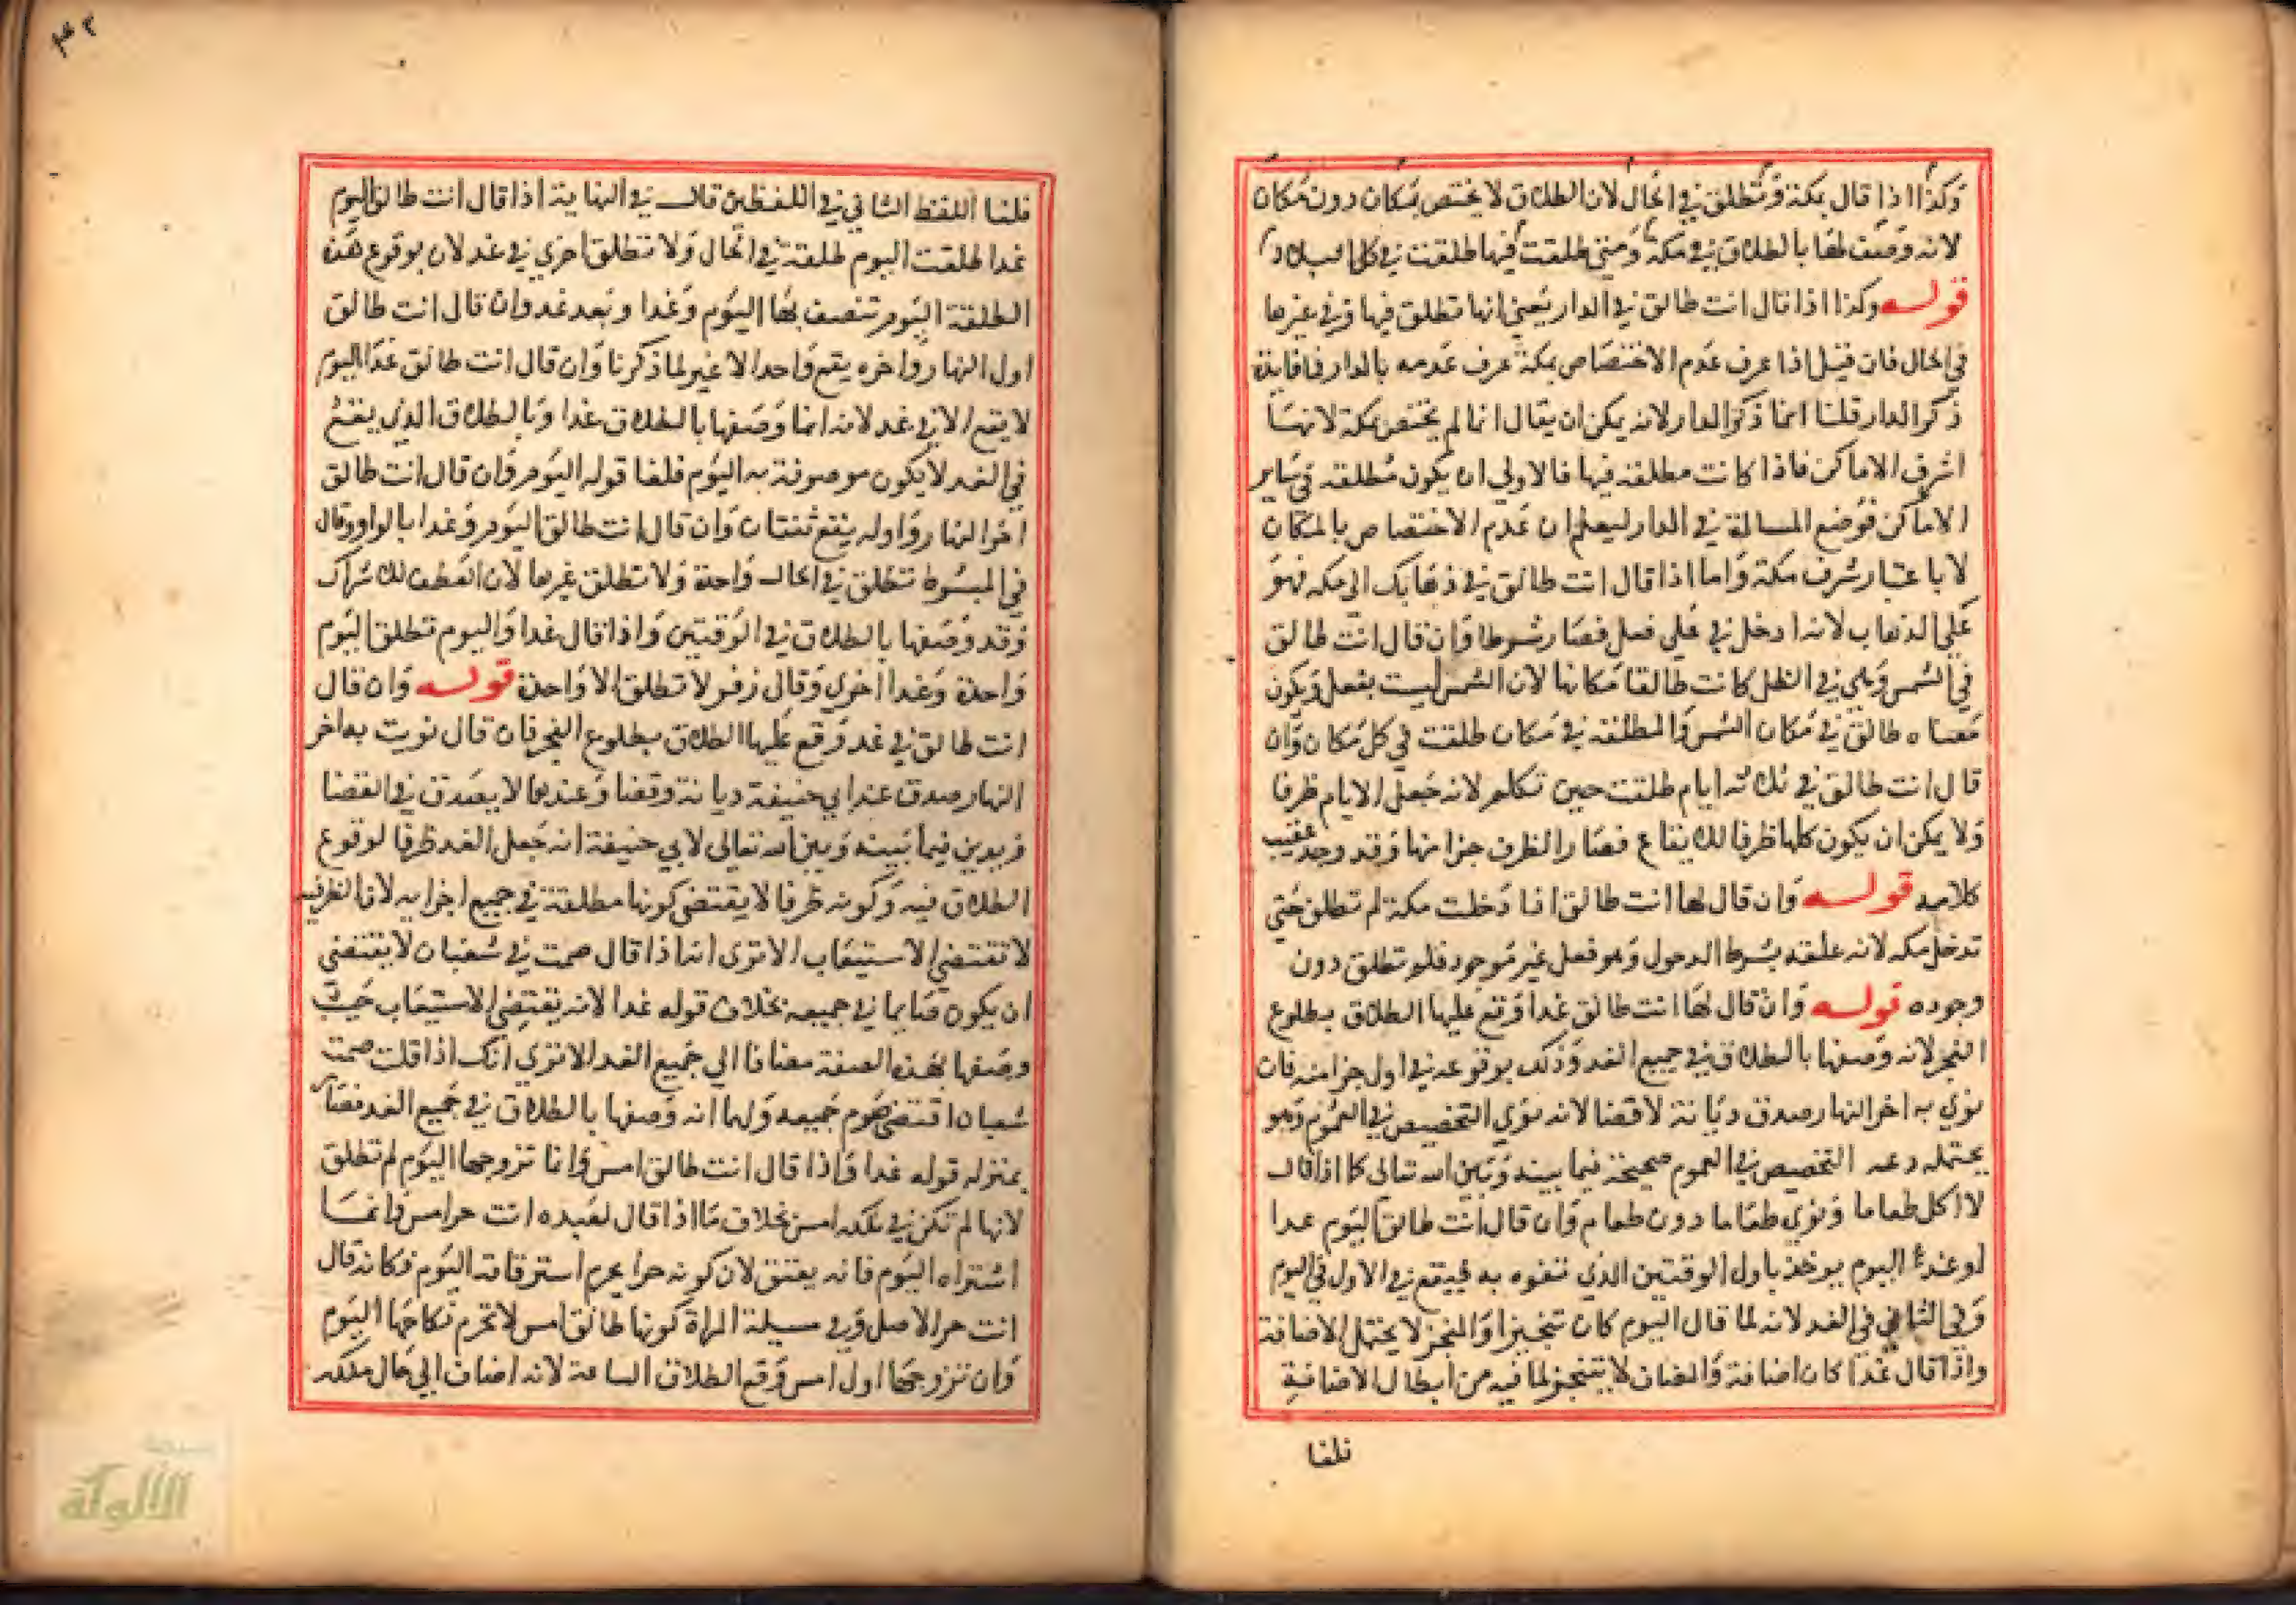 وكذا اذا قال بمكة وتطلق في الحال لان الطلاق لا يختص بمكان دون مكان
لانه وصف لها بالطلاق في مكة ومتى طلقت فيها طلقت في كل البلاد
قوله وكذا اذا قال انت طالق في الدار يعني انها تطلق فيها وفي غيرها
في الحال فان قيل اذا عرف عدم الاختصاص بمكة عرف عدمه بالدار فما فايدة
ذكر الدار قلنا انما ذكر الدار لانه يمكن ان يقال انما لم يختص بمكة لانها
اشرف الاماكن فاذا كانت مطلقة فيها فالاولي ان يكون مطلقة في ساير
الاماكن فوضع المسالة في الدار ليعلم ان عدم الاختصاص بالمكان
لا باعتبار شرف مكة واما اذا قال انت طالق في ذهابك الى مكه فهو
على الذهاب لانه ادخل في على فعل فصار شرطا وان قال انت طالق
في الشمس وهي في الظل كانت طالقا مكانها لان الشمس ليست بفعل ويكون
معناه طالق في مكان الشمس والمطلقة في مكان طلقت في كل مكان وان
قال انت طالق في ثلاثه ايام طلقت حين تكلم لانه جعل الايام ظرفا
ولا يمكن ان يكون كلها ظرفا للايقاع فصار الظرف جزا منها وقد وجد عقيب
كلامه قوله وان قال لها انت طالق اذا دخلت مكة لم تطلق حتي
تدخل مكه لانه علقه بشرط الدخول وهو فعل غير موجود فلم تطلق دون
وجوده قوله وان قال لها انت طالق غدا وقع عليها الطلاق بطلوع
الفجر لانه وصفها بالطلاق في جميع الغد وذلك بوقوعه في اول جزا منه فان
نوي به اخر النهار صدق ديانة لا قضا لانه نوي التخصيص في العموم وهو
يحتمله التخصيص في العموم صحيحة فيما بينه وبين الله تعالى كما اذا قال
لا اكل طعاما ونوي طعاما دون طعام وان قال انت طالق اليوم غدا
او غدا اليوم يوخذ باول الوقتين الذي تفوه به فيقع في الاول في اليوم
وفي الثاني في الغد لانه لما قال اليوم كان تنجيزا والمنجز لا يحتمل الاضافة
واذا قال غدا كان اضافة والمضاف لا يتنجز لما فيه من ابطال الاضافة
فلغا
٣٢
فلغا اللفظ الثاني في اللفظين قال في النهاية اذا قال انت طالق اليوم
غدا طلقت اليوم طلقة في الحال ولا تطلق اخري في غد لان بوقوع هذه
الطلقة اليوم تتصف بها اليوم وغدا وبعد غد وان قال انت طالق
اول النهار واخره يقع واحدا لا غير لما ذكرنا وان قال انت طالق غدا اليوم
لا يقع الا في غد لانه انما وصفها بالطلاق غدا وبالطلاق الذي يقع
في الغد لا يكون موصوفة به اليوم فلغا قوله اليوم وان قال انت طالق
اخر النهار واوله يقع ثنتان وان قال انت طالق اليوم وغدا بالواو وقال
في المبسوط تطلق في الحال واحدة ولا تطلق غيرها لان العطف للاشراك
وقد وصفها بالطلاق في الوقتين واذا قال غدا واليوم تطلق اليوم
واحدة وغدا اخرى وقال زفر لا تطلق الا واحدة قوله وان قال
انت طالق في غد وقع عليها الطلاق بطلوع الفجر فان قال نويت به اخر
النهار صدق عند ابي حنيفة ديانة وقضا وعندهما لا يصدق في القضا
ويدين فيما بينه وبين الله تعالى لابي حنيفة انه جعل الغد ظرفا لوقوع
الطلاق فيه وكونه ظرفا لا يقتضي كونها مطلقة في جميع اجزايه لان الظرفيه
لا تقتضي الاستيعاب الا ترى انه اذا قال صمت في شعبان لا يقتضي
ان يكون صايما في جميعه بخلاف قوله غدا لانه يقتضي الاستيعاب حيث
وصفها بهذه الصفة مضافا الي جميع الغد الا تري انك اذا قلت صمت
شعبان اقتضي صوم جميعه ولهما انه وصفها بالطلاق في جميع الغد فصار
بمنزله قوله غدا واذا قال انت طالق امس وانما تزوجها اليوم لم تطلق
لانها لم تكن في ملكه امس بخلاف ما اذا قال لعبده انت حر امس وانما
اشتراه اليوم فانه يعتق لان كونه حرا يحرم استرقاقه اليوم فكانه قال
انت حر الاصل وفي مسيلة المراة كونها طالق امس لا تحرم نكاحها اليوم
وان تزوجها اول امس وقع الطلاق الساعة لانه اضاف الي حال ملكه
الألوكة